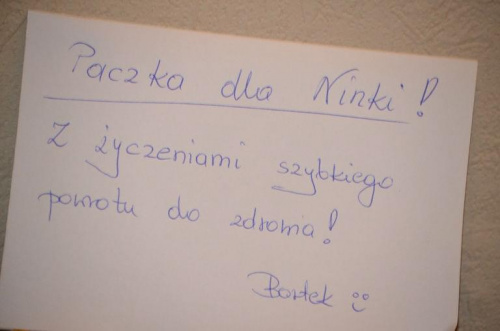 Paczka dla Ninki!
Z życzeniami szybkiego
powrotu do zdrowia!
Bartek :)